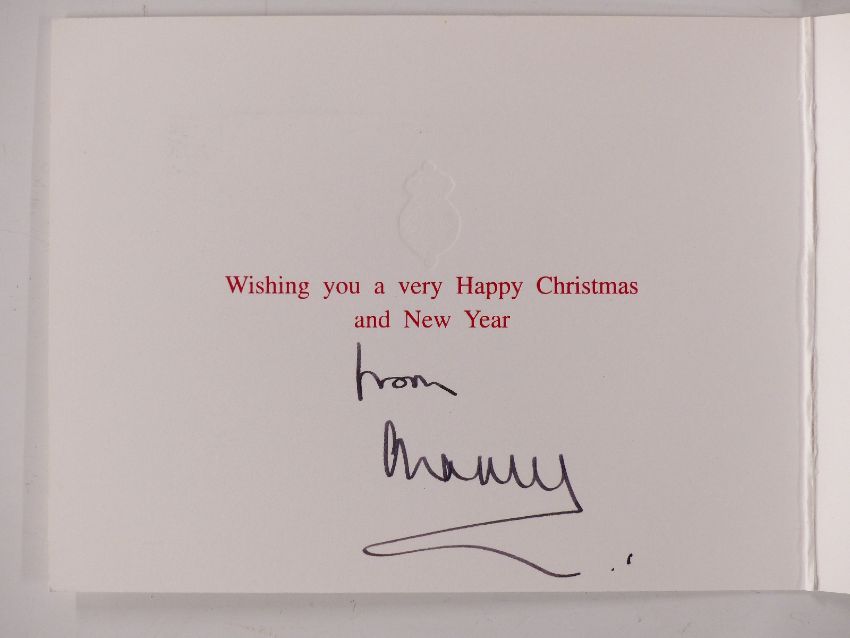 Wishing you a very Happy Christmas
and New Year
from